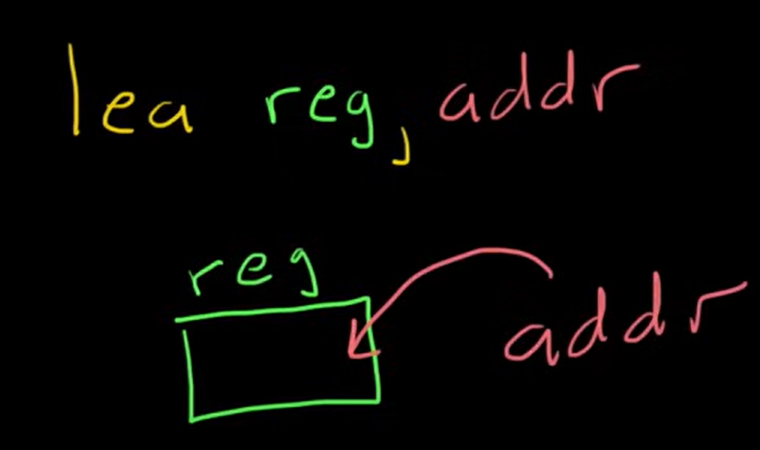 lea reg, addr
reg
addr